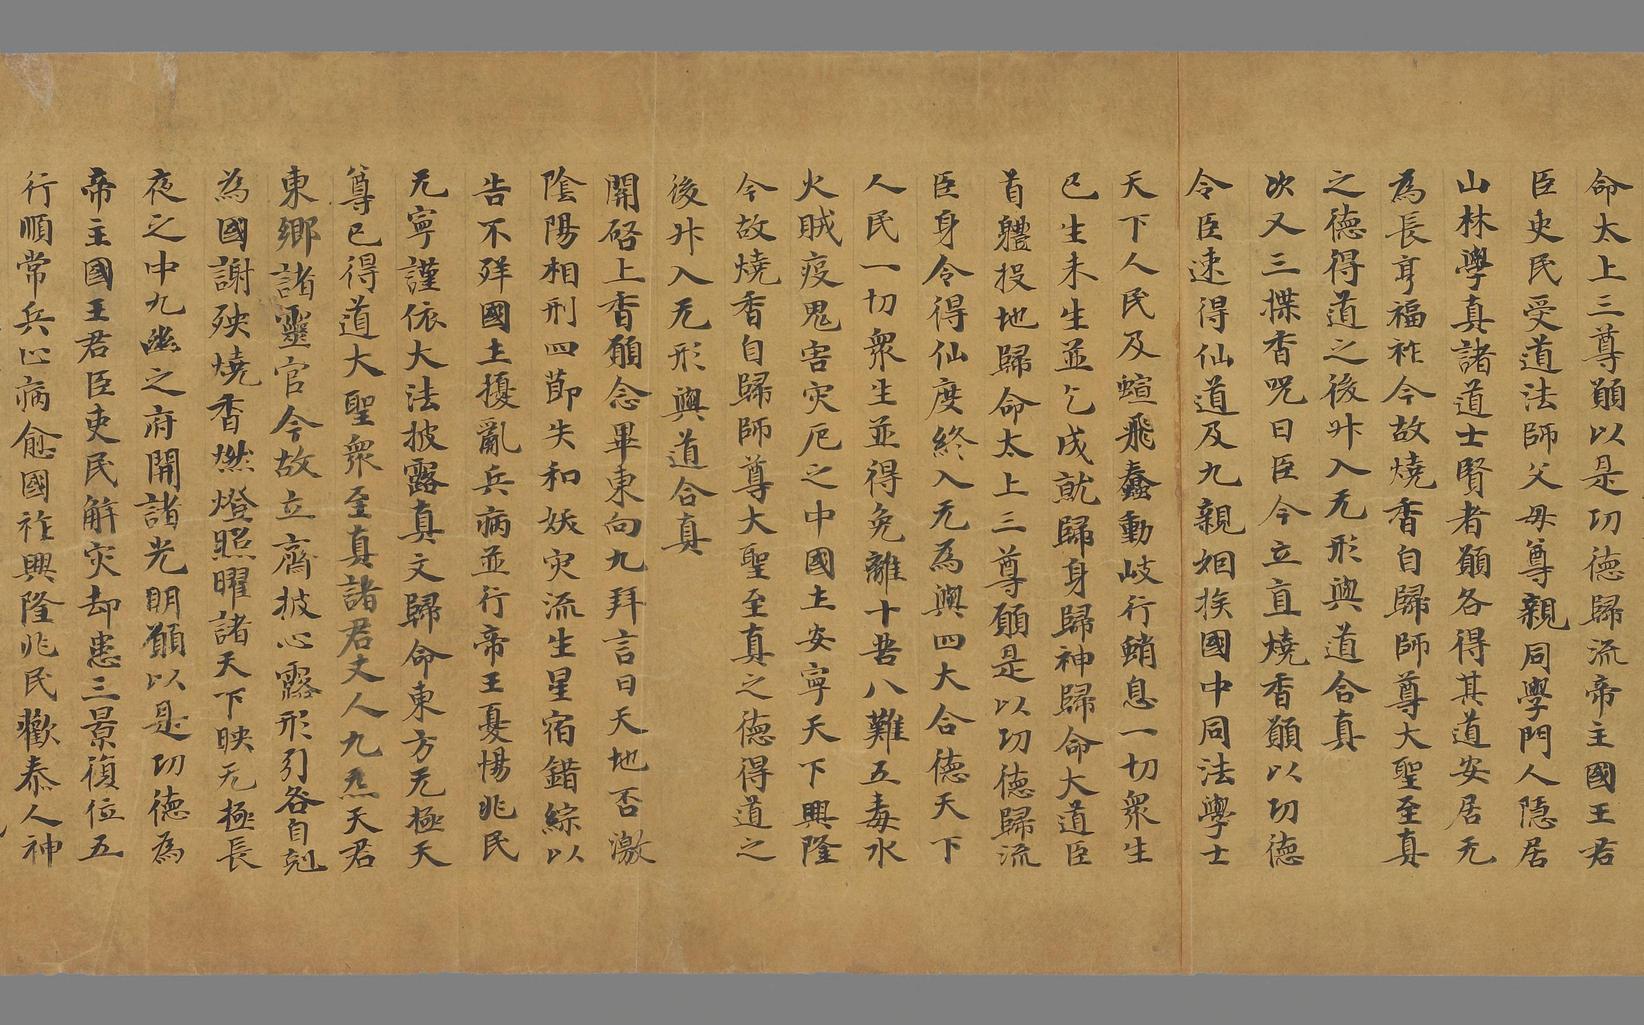 命太上三尊願以是功德歸流帝主國王君
臣吏民受道法師父母尊親同學門人隱居
山林學真諸道士賢者願各得其道安居无
為長享福祚今故燒香自歸師尊大聖至真
之德得道之後昇入无形與道合真
次又三揲香呪曰臣今立直燒香願以功德
令臣速得仙道及九親姻族國中同法學士
天下人民及蝖飛蠢動岐行蜎息一切眾生
已生未生並乞成就歸身歸神歸命大道臣
首軆投地歸命太上三尊願是以功德歸流
臣身令得仙度終入无為與四大合德天下
人民一切眾生並得免離十苦八難五毒水
火賊疫鬼害灾厄之中國土安寧天下興隆
今故燒香自歸師尊大聖至真之德得道之
後昇入无形與道合真
開啓上香願念畢東向九拜言曰天地否激
陰陽相刑四節失和妖灾流生星宿錯綜以
告不祥國土擾亂兵病並行帝王憂惕兆民
无寧謹依大法披露真文歸命東方无極天
尊已得道大聖眾至真諸君丈人九炁天君
東鄉諸靈官今故立齋披心露形引咎自剋
為國謝殃燒香燃燈照曜諸天下映无極長
夜之中九幽之府開諸光明願以是功德為
帝主國王君臣吏民解灾却患三景復位五
行順常兵止病愈國祚興隆兆民歡泰人神